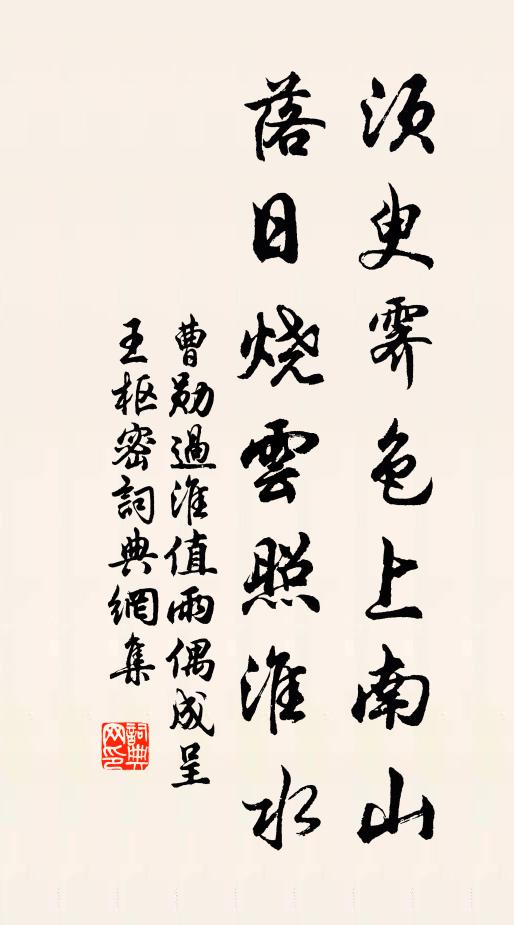 须臾霽色上南山
落日烧雲照淮水
曹勛過淮值雨偶成呈
王枢密詞典網集
詞典網印